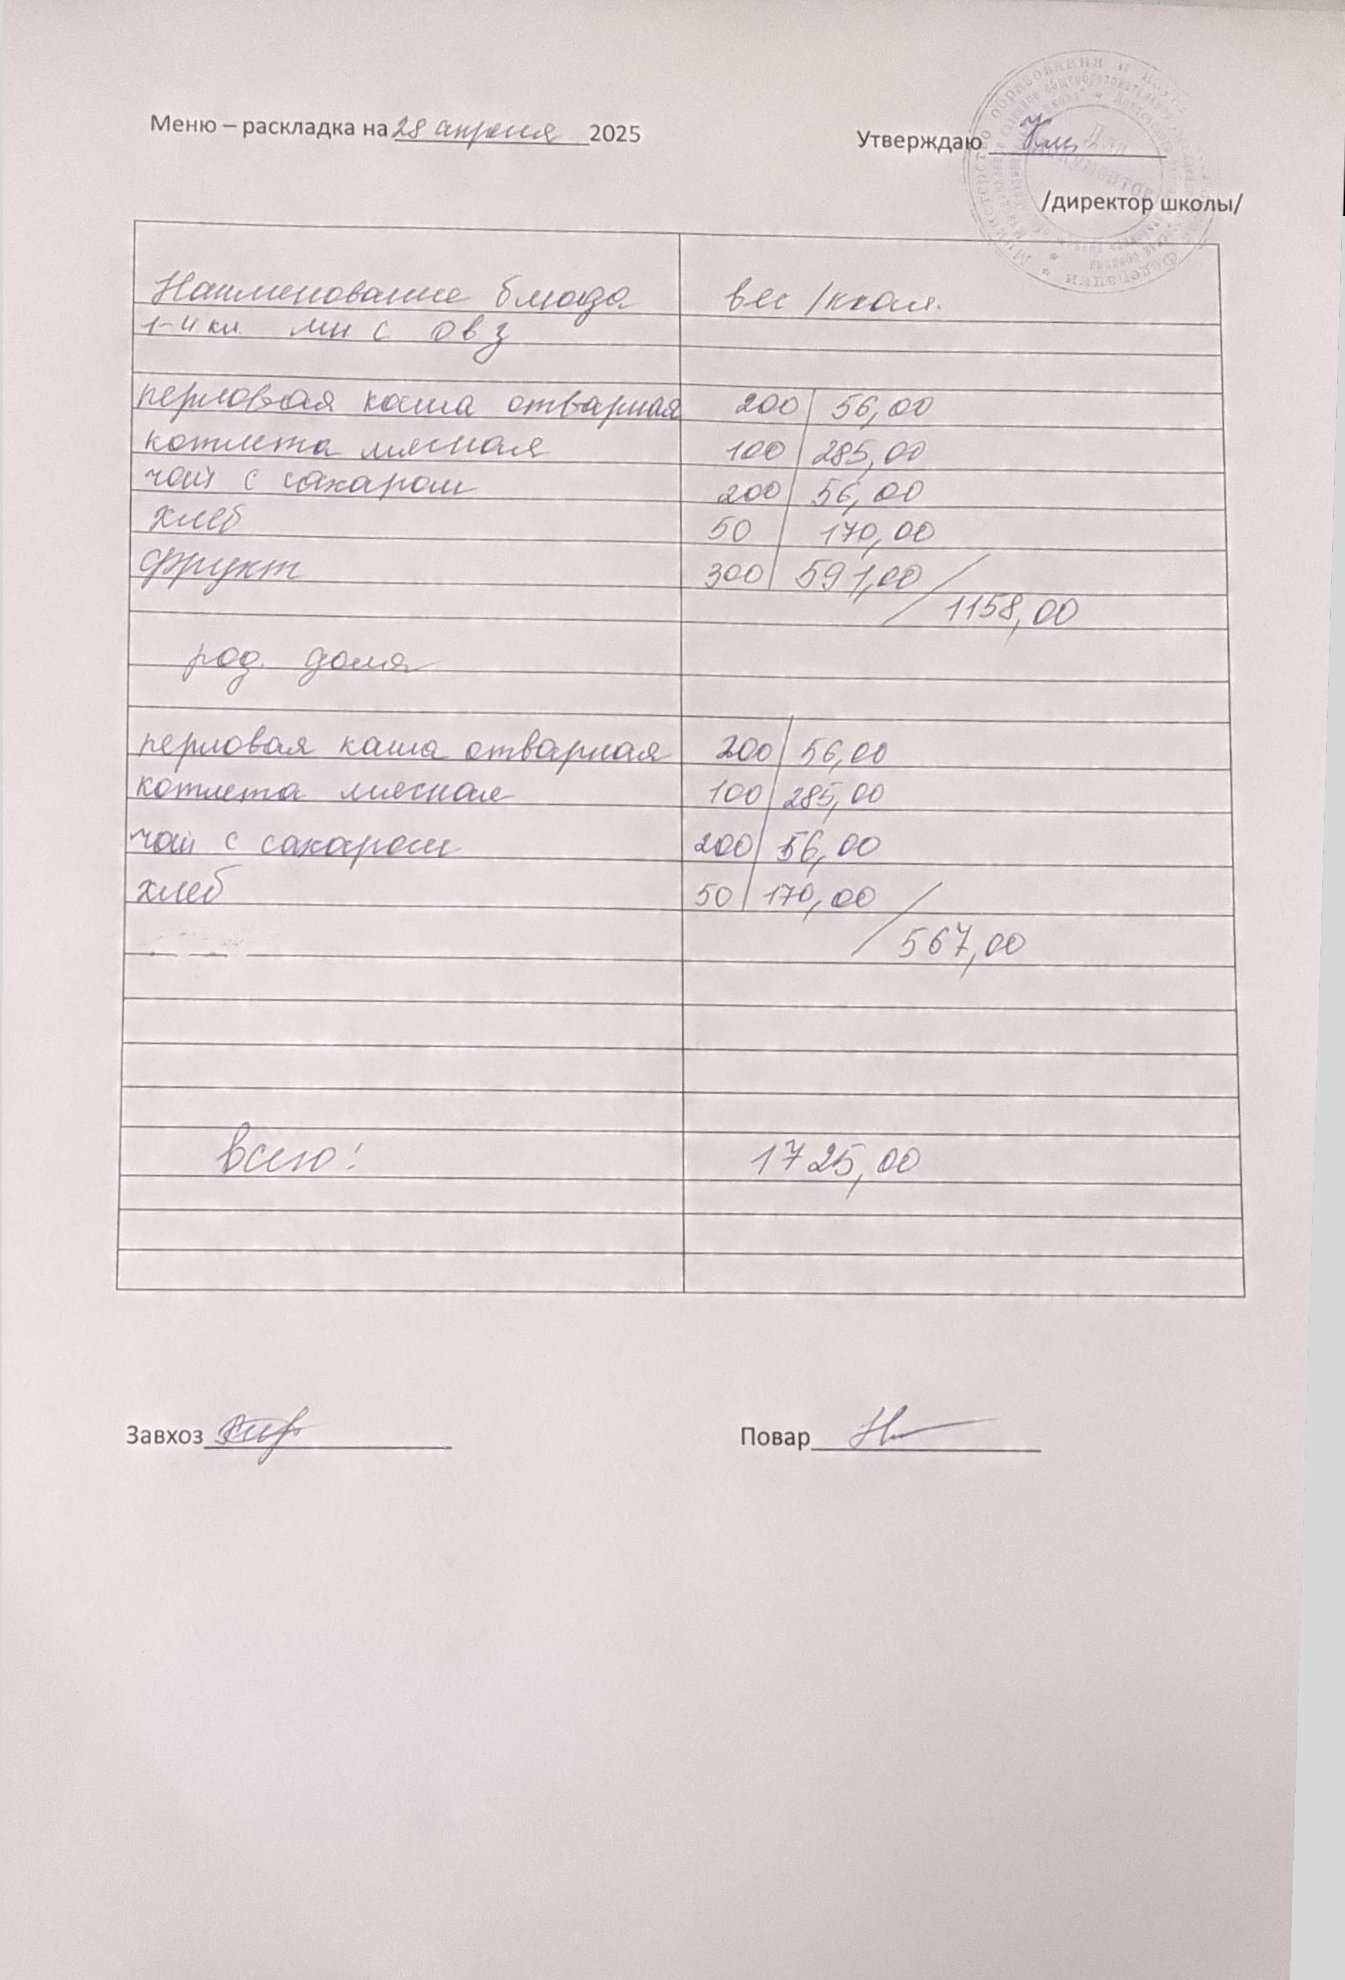 Меню – раскладка на 28 апреля 2025
Утверждаю
/директор школы/
Наименование блюда вес /ккал.
1-4 кл мн с овз
перловая каша отварная 200 56,00
котлета мясная 100 285,00
чай с сахаром 200 56,00
хлеб 50 170,00
фрукт 300 591,00
1158,00
род. доля
перловая каша отварная 200 56,00
котлета мясная 100 285,00
чай с сахаром 200 56,00
хлеб 50 170,00
567,00
всего: 1725,00
Завхоз
Повар